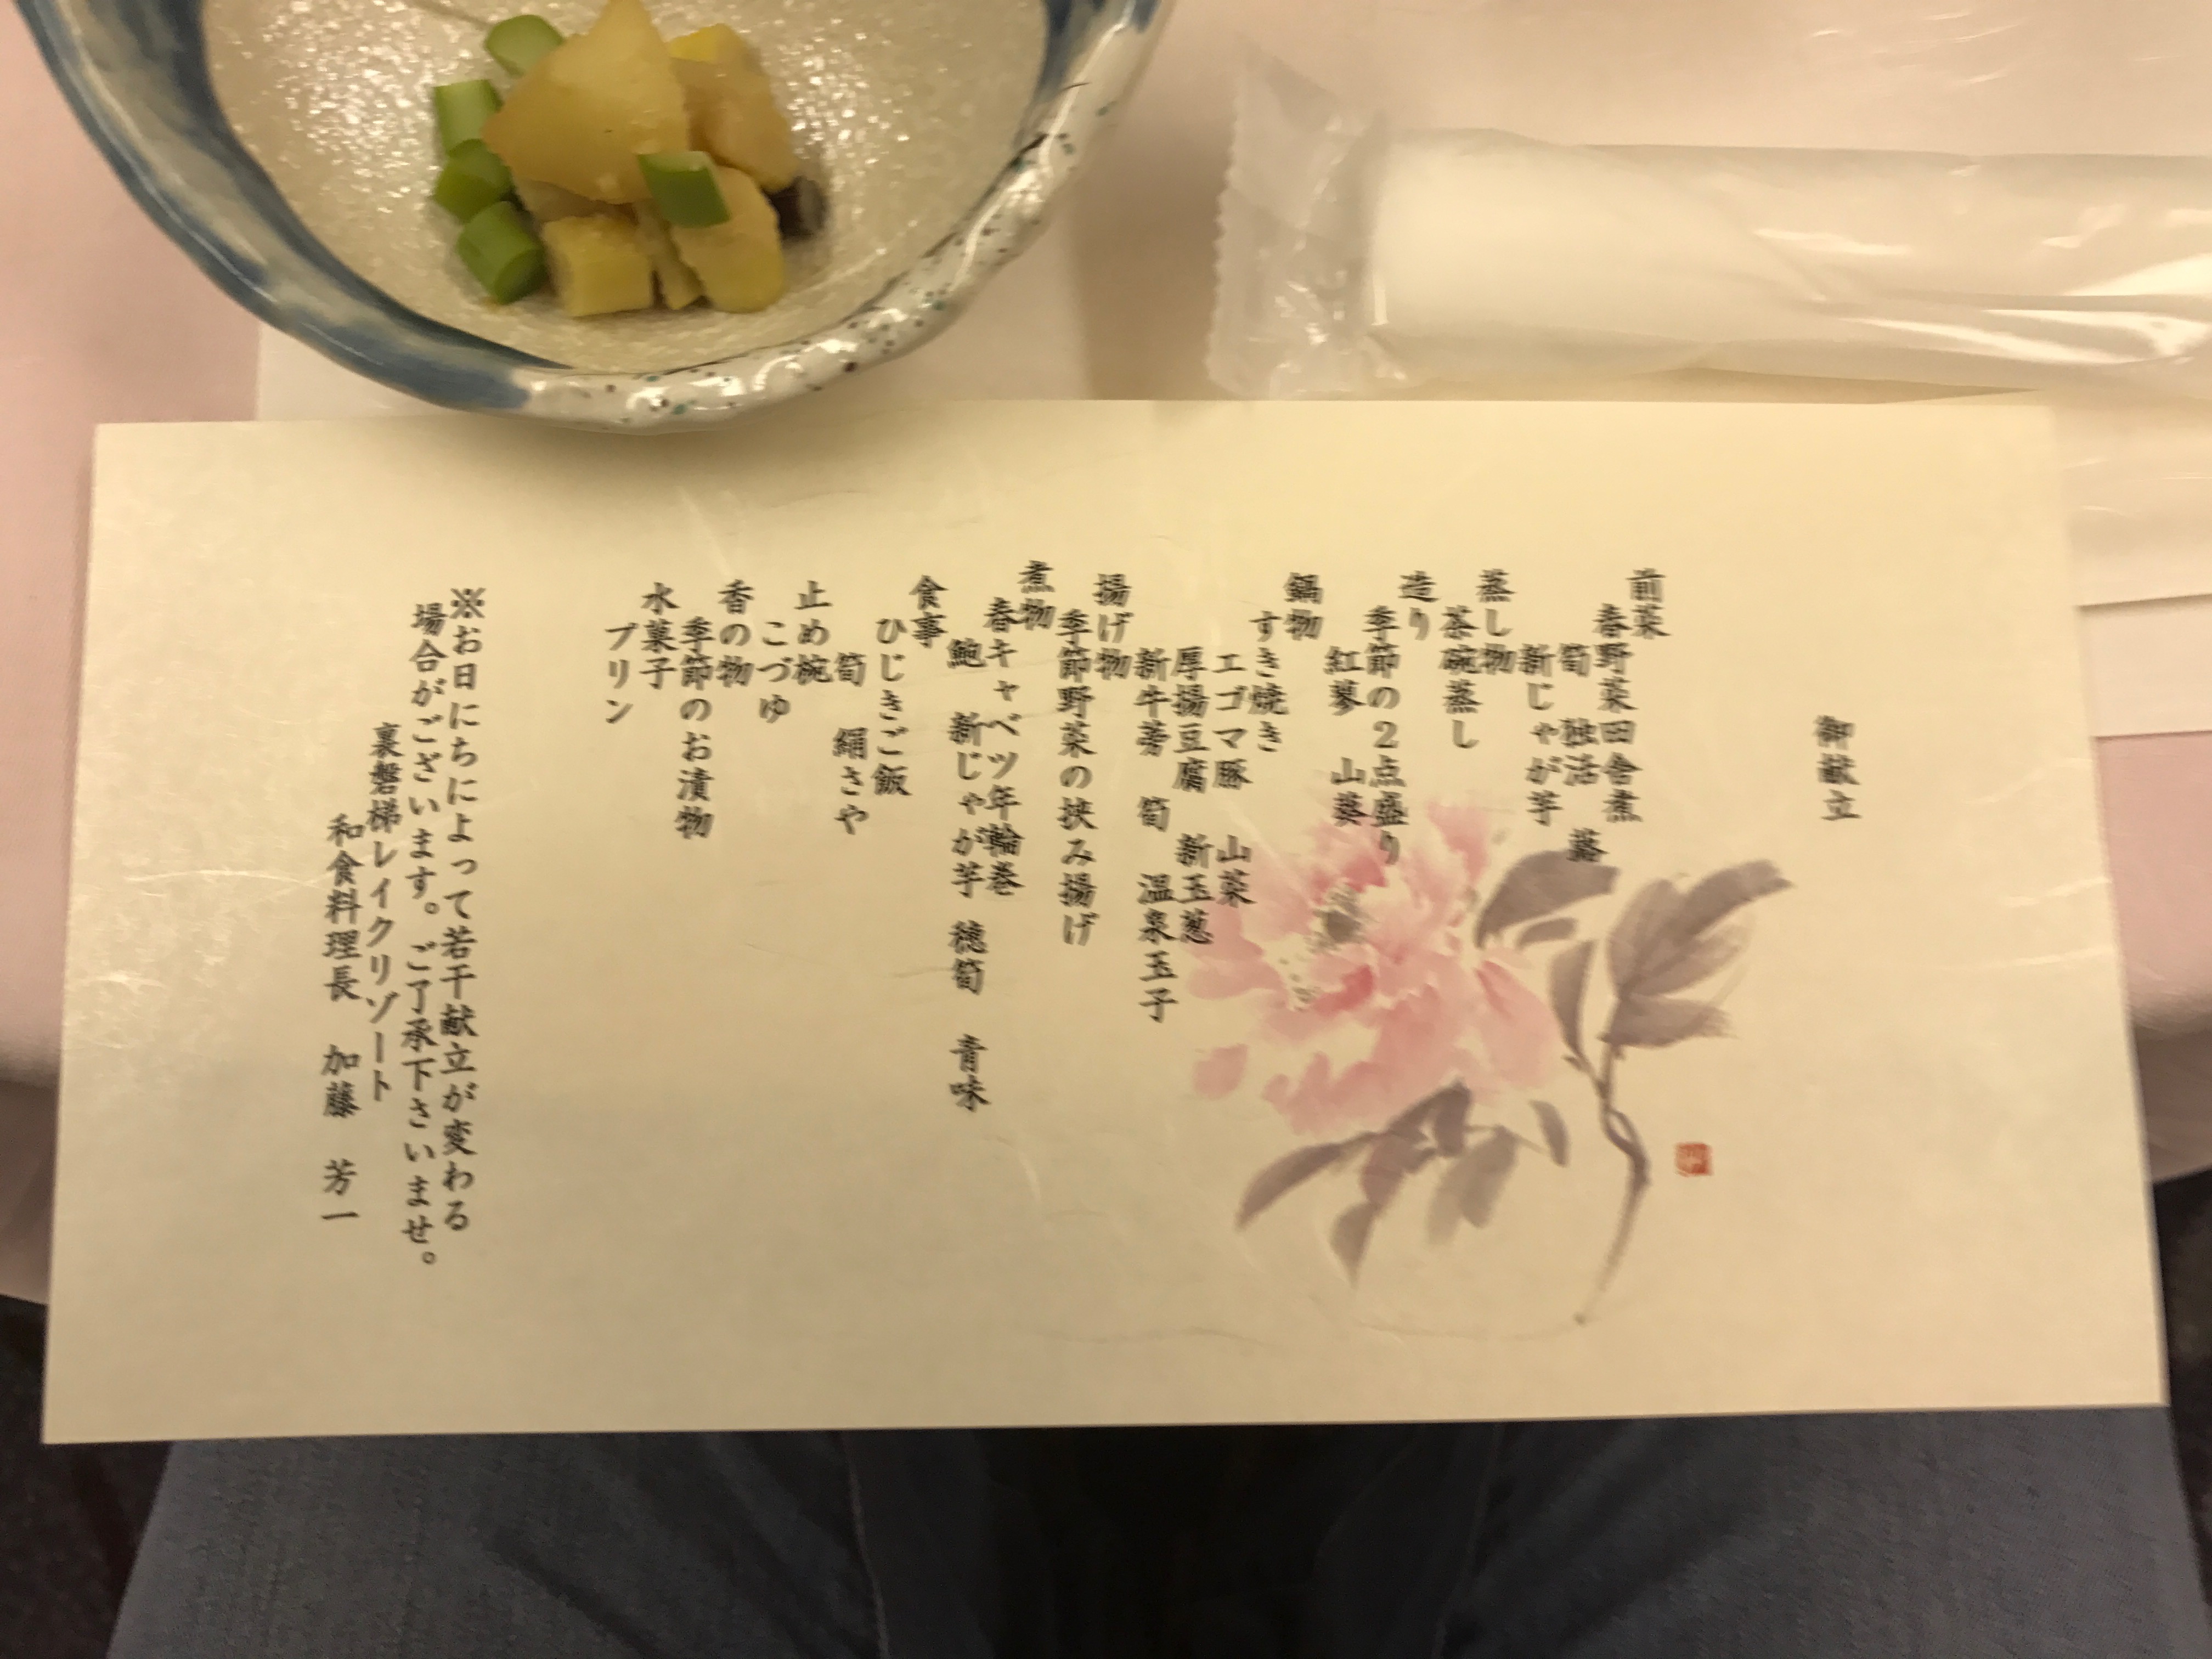 御献立
前菜
春野菜田舎煮
筍　独活　蕗
新じゃが芋
蒸し物
茶碗蒸し
造り
季節の2点盛り
紅蓼　山葵
鍋物
すき焼き
エゴマ豚　山菜
厚揚豆腐　新玉葱
新牛蒡　筍　温泉玉子
揚げ物
季節野菜の挟み揚げ
煮物
春キャベツ年輪巻
鮑　新じゃが芋　穂筍　青味
食事
ひじきご飯
筍　絹さや
止め椀
こづゆ
香の物
季節のお漬物
水菓子
プリン
※お日にちによって若干献立が変わる
場合がございます。ご了承下さいませ。
裏磐梯レイクリゾート
和食料理長　加藤　芳一